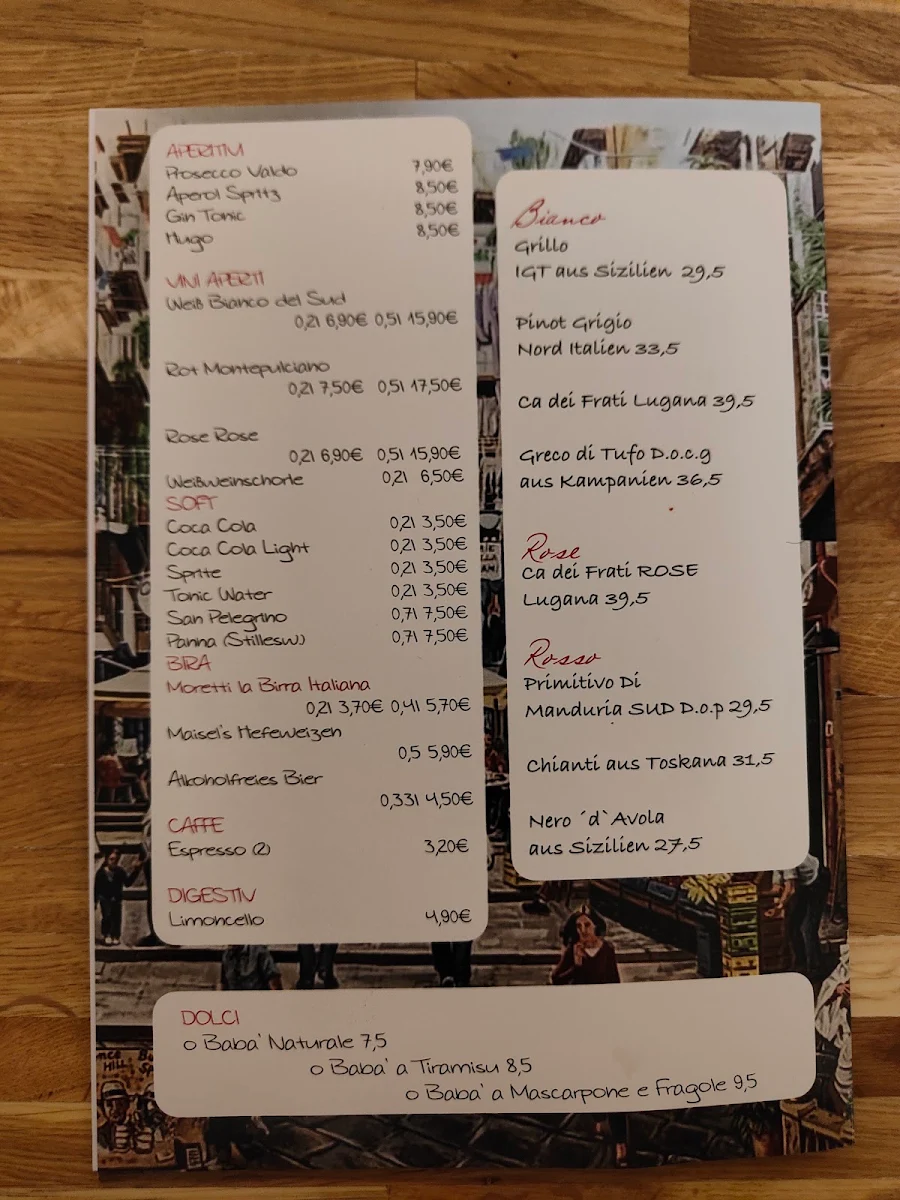 APERITIVI
Prosecco Valdo 7,90€
Aperol Spritz 8,50€
Gin Tonic 8,50€
Hugo 8,50€
VINI APERTI
Weiß Bianco del Sud
0,2l 6,90€ 0,5l 15,90€
Rot Montepulciano
0,2l 7,50€ 0,5l 17,50€
Rose Rose
0,2l 6,90€ 0,5l 15,90€
Weißweinschorle 0,2l 6,50€
SOFT
Coca Cola 0,2l 3,50€
Coca Cola Light 0,2l 3,50€
Sprite 0,2l 3,50€
Tonic Water 0,2l 3,50€
San Pelegrino 0,7l 7,50€
Panna (Stillesw.) 0,7l 7,50€
BIRA
Moretti la Birra Italiana
0,2l 3,70€ 0,4l 5,70€
Maisel's Hefeweizen
0,5 5,90€
Alkoholfreies Bier
0,33l 4,50€
CAFFE
Espresso (2) 3,20€
DIGESTIV
Limoncello 4,90€
Bianco
Grillo
IGT aus Sizilien 29,5
Pinot Grigio
Nord Italien 33,5
Ca dei Frati Lugana 39,5
Greco di Tufo D.o.c.g
aus Kampanien 36,5
Rose
Ca dei Frati ROSE
Lugana 39,5
Rosso
Primitivo Di
Manduria SUD D.o.p 29,5
Chianti aus Toskana 31,5
Nero ´d`Avola
aus Sizilien 27,5
DOLCI
o Baba' Naturale 7,5
o Baba' a Tiramisu 8,5
o Baba' a Mascarpone e Fragole 9,5